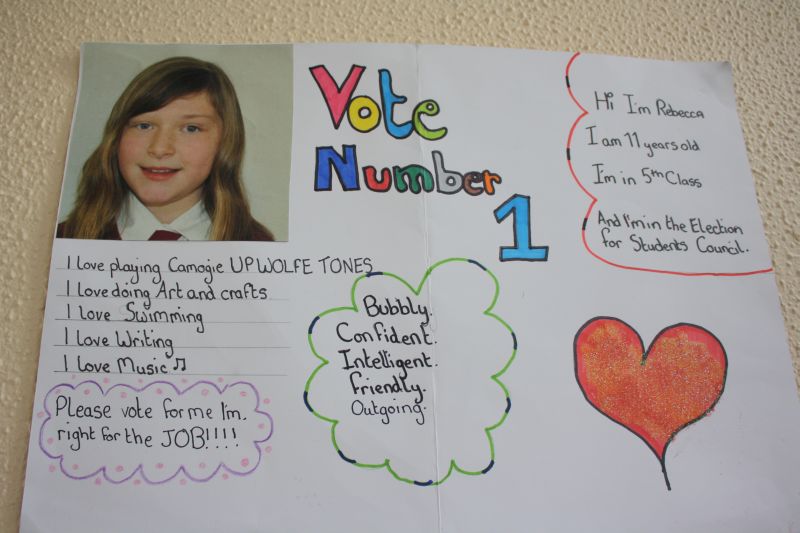 Vote
Number
1
Hi I'm Rebecca
I am 11 years old
I'm in 5th Class
And I'm in the Election
for Students Council.
I love playing Camogie UP WOLFE TONES
I love doing Art and crafts
I love Swimming
I love Writing
I love Music ♫
Bubbly.
Confident.
Intelligent.
friendly.
Outgoing.
Please vote for me I'm.
right for the JOB!!!!